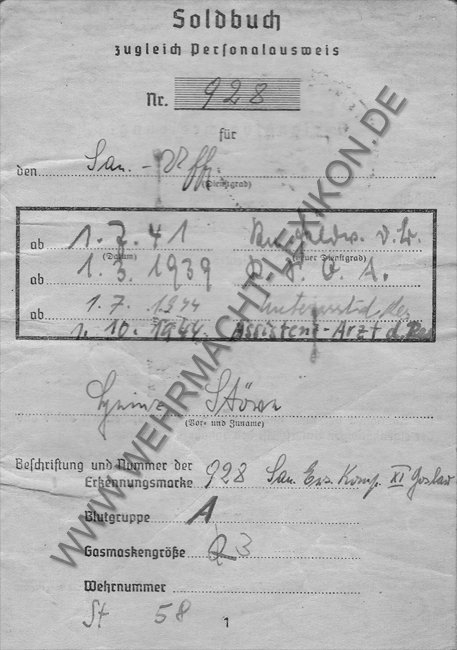 Soldbuch
zugleich Personalausweis
Nr. 928
für
den San.-Uffz.
(Dienstgrad)
ab 1. 7. 41 d. R.
(Datum) (neuer Dienstgrad)
ab 1. 3. 1939 O. A.
ab 1. 7. 1944 Unterarzt d. Res
1. 10. 1944. Assistenz-Arzt d. Res
Heinz Stöwe
(Vor- und Zuname)
Beschriftung und Nummer der
Erkennungsmarke 928 San. Ers. Komp. XI Goslar
Blutgruppe A
Gasmaskengröße 3
Wehrnummer
St 58
1
WWW.WEHRMACHT-LEXIKON.DE